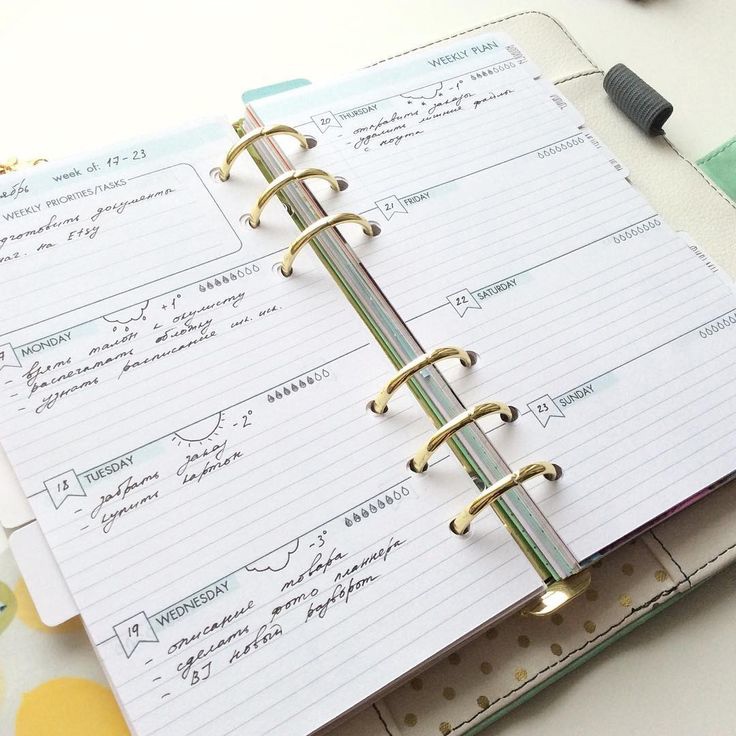 week of: 17-23
WEEKLY PRIORITIES/TASKS
документы
на Etsy
MONDAY +1°
- взять талон к окулисту
- распечатать обложку
- узнать расписание
18 TUESDAY -2°
- забрать заказ
- купить картон
19 WEDNESDAY -3°
- описание товара
- сделать фото планнера
- BJ новый разворот
WEEKLY PLAN
20 THURSDAY -1°
отправить заказы
удалить лишние файлы
с ноута
21 FRIDAY
22 SATURDAY
23 SUNDAY